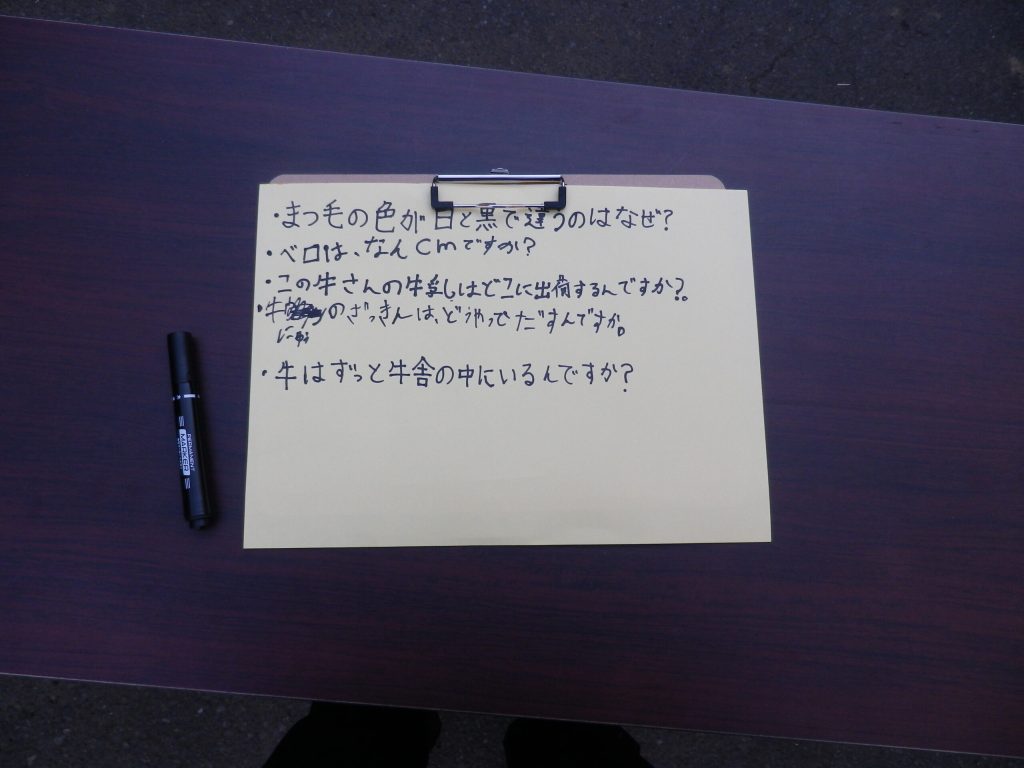 ・まつ毛の色が白と黒で違うのはなぜ?
・ベロは、なんcmですか?
・この牛さんの牛乳はどこに出荷するんですか?。
・牛のざっきんは、どうやってだすんですか。
にゅう
・牛はずっと牛舎の中にいるんですか?
PERMANENT
MARKER